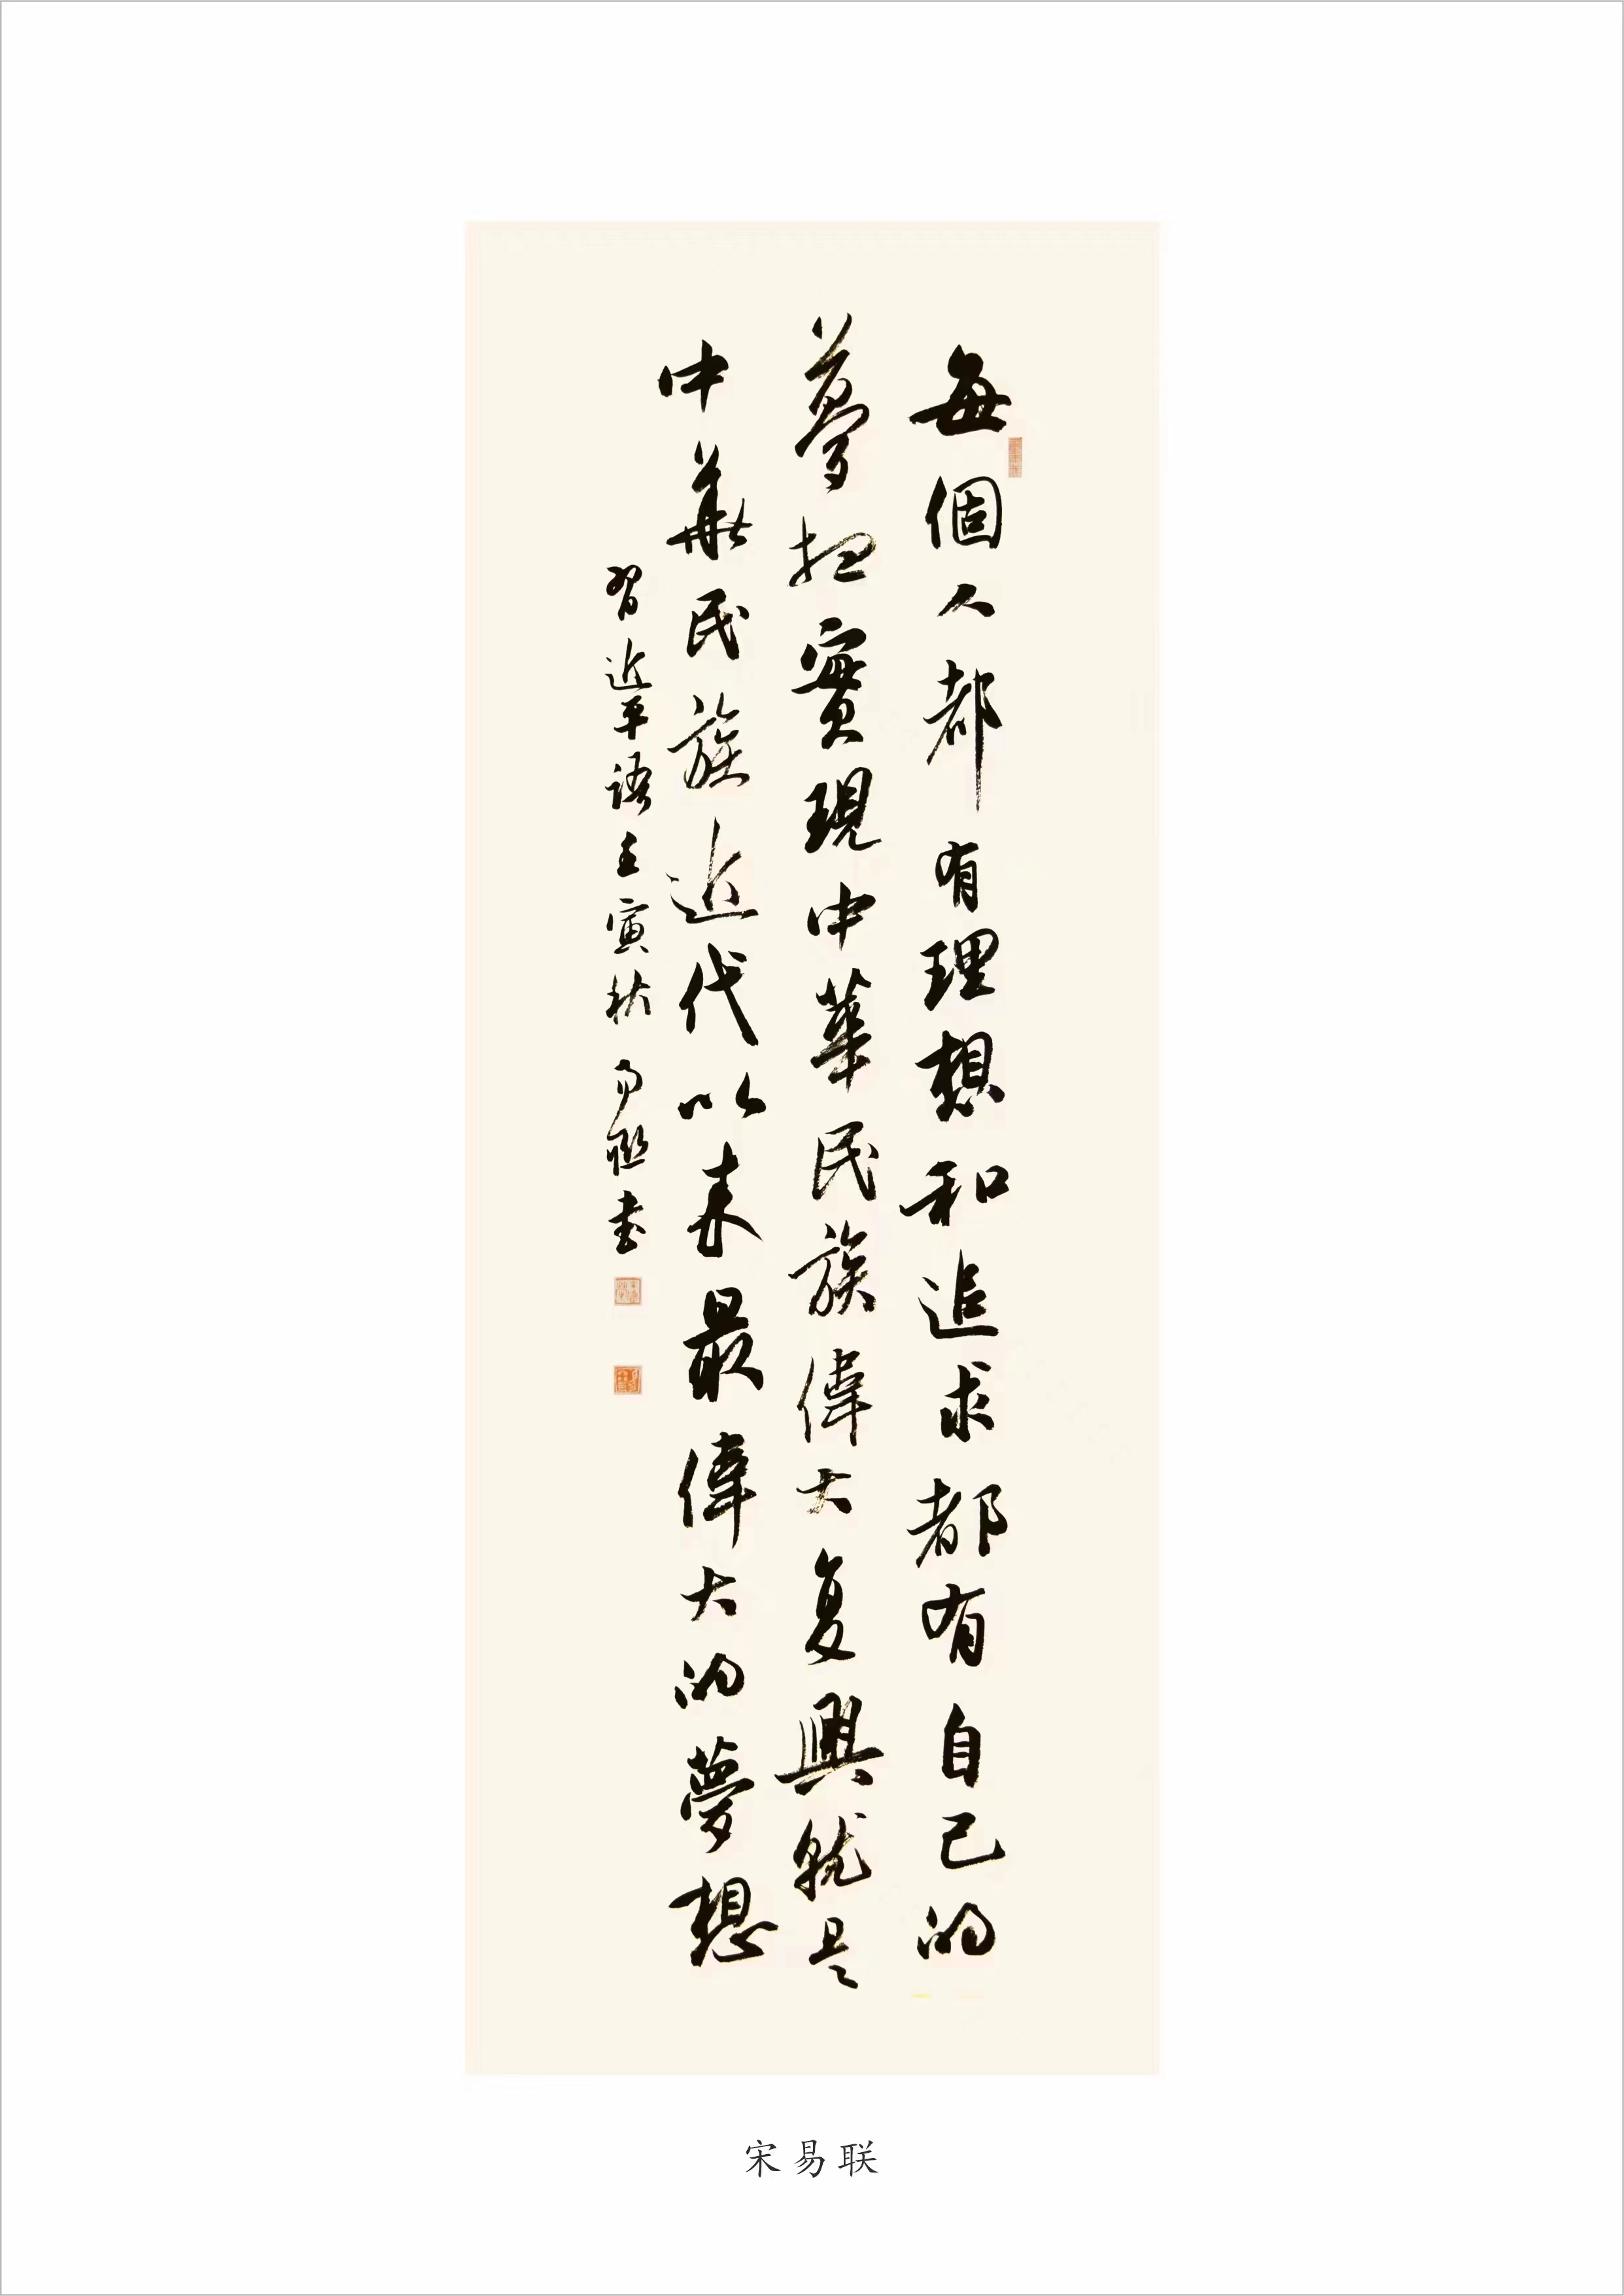 每個人都有理想和追求都有自己的
夢想實現中華民族偉大复興就是
中華民族近代以来最偉大的夢想
習近平語壬寅秋易聯书
宋易联